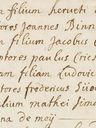 filium herueti
tores Joannes Binn
filium Jacobus
tores paulus Cries
filiam Ludovic
tores fredericus
filium mathei Simo
na de moÿ